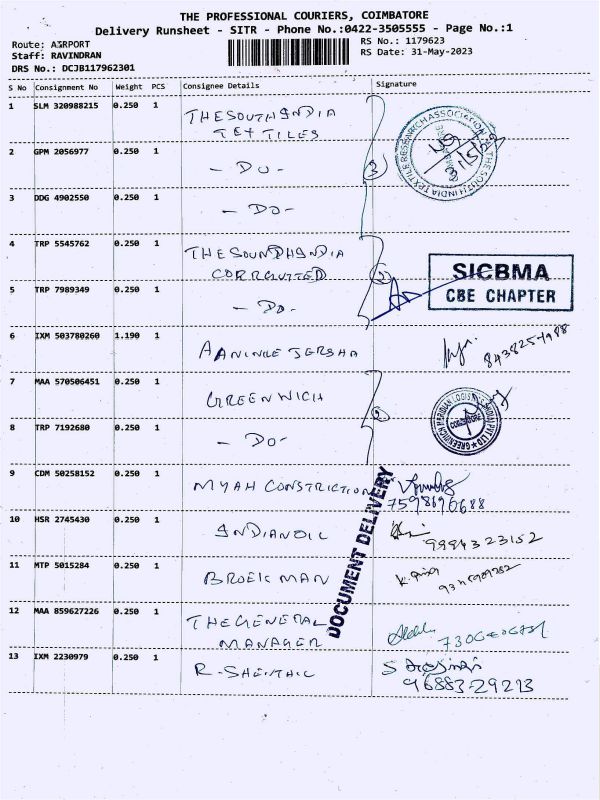 THE PROFESSIONAL COURIERS, COIMBATORE
Delivery Runsheet - SITR - Phone No.:0422-3505555 - Page No.:1
Route: AIRPORT
RS No.: 1179623
Staff: RAVINDRAN
RS Date: 31-May-2023
DRS No.: DCJB117962301
S No Consignment No Weight PCS Consignee Details Signature
1 SLM 320988215 0.250 1 THESOUTHINDIA
TEXTILES
2 GPM 2056977 0.250 1 - DO -
3 DDG 4902550 0.250 1 - DO -
4 TRP 5545762 0.250 1 THESOUNDHINDIA
CORROUTTED
SICBMA
CBE CHAPTER
5 TRP 7989349 0.250 1 - DO -
6 IXM 503780260 1.190 1 JERSHA
7 MAA 570506451 0.250 1 GREENWICH
8 TRP 7192680 0.250 1 - DO -
9 CDM 50258152 0.250 1 MYAH CONSTRICTION
DOCUMENT DELIVERY
10 HSR 2745430 0.250 1 INDIANOIL
9994323152
11 MTP 5015284 0.250 1 BROEKMAN
12 MAA 859627226 0.250 1 THEGENERAL
MANAGER
13 IXM 2230979 0.250 1
96883-29213